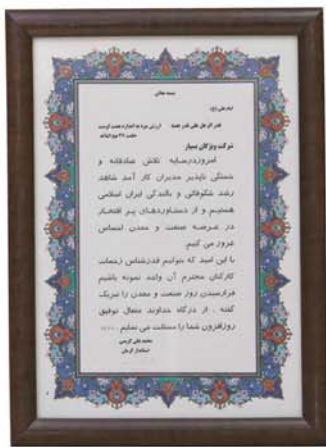 بسمه تعالی
امام علی (ع):
قدر الرجل علی قدر همته ارزش مرد به اندازه همت اوست
حکمت ۴۷ نهج البلاغه
شرکت ویژگان بسپار
امروز در سایه تلاش صادقانه و
خستگی ناپذیر مدیران کار آمد شاهد
رشد شکوفائی و بالندگی ایران اسلامی
هستیم و از دستاوردهای پر افتخار
در عرصه صنعت و معدن احساس
غرور می کنیم.
با این امید که بتوانیم قدرشناس زحمات
کارکنان محترم آن واحد نمونه باشیم
فرارسیدن روز صنعت و معدن را تبریک
گفته ، از درگاه خداوند متعال توفیق
روزافزون شما را مسئلت می نمایم .
محمد علی کریمی
استاندار کرمان